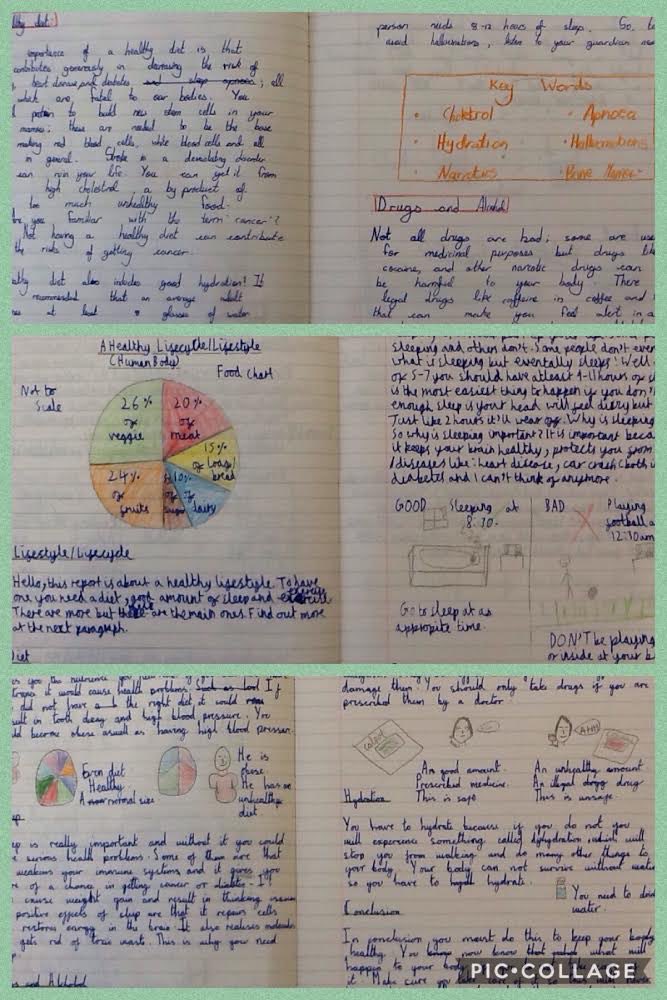 lthy diet
importance of a healthy diet is that
contributes generously in decreasing the risk of
, heart disease, and diabetes and sleep apnoea; all
which are fatal to our bodies. You
protein to build new stem cells in your
marrows; these are needed to be the base
making red blood cells, white blood cells and all
in general. Stroke is a demolating disorder
can ruin your life. You can get it from
high cholestrol, a by product of
too much unhealthy food.
are you familiar with the term 'cancer'?
Not having a healthy diet can contribute
the risks of getting cancer.
althy diet also includes good hydration! It
recommended that an average adult
at least glasses of water
person needs 8-12 hours of sleep. So, to
avoid hallucinations, listen to your guardian
Key Words
• Cholestrol
• Apnoea
• Hydration
• Hallucinations
• Narcotics
• Bone Marrow
Drugs and Alcohol
Not all drugs are bad; some are use
for medicinal purposes but drugs like
cocaine, and other narcotic drugs can
be harmful to your body. There
legal drugs like caffeine in coffee and
that can make you feel alert in a
A Healthy Lifecycle/Lifestyle
(Human Body)
Food Chart
Not to
Scale
26%
of
veggie
20%
of
meat
15%
of loaf/
bread
24%
of
fruits
10%
of
dairy
of
sugar
Lifestyle/Lifecycle
Hello, this report is about a healthy lifestyle. To have
one you need a diet, good amount of sleep and exercise
There are more but these are the main ones. Find out more
at the next paragraph.
Diet
sleeping and others don't. Some people don't even
what is sleeping but eventally sleeps! Well
of 5-7 you should have atleast 9-11 hours of sl
is the most easiest thing to happen if you don't
enough sleep is your head will feel dizzy but
Just like 2 hours it'll wear off. Why is sleeping
So why is sleeping important? It is important becau
it keeps your brain healthy, protects you from
/diseases like: heart disease, car crash (both i
diabetes and I can't think of anymore.
GOOD
Sleeping at
8:30.
BAD
Playing
football a
12:30am
Go to sleep at as
appropite time.
DON'T be playing
or inside at your b
you the nutrience
it would cause health problems. Such as bool If
did not have the right diet it could
sult in tooth decay and high blood pressure. You
uld become obese aswell as having high blood pressure.
Even diet
Healthy
A normal size
He is
obese
He has a
unhealthy
diet
ep
ep is really important and without it you could
serious health problems. Some of them are that
weakens your immune systems and it gives you
re of a chance in getting cancer or diabetes. It
cause weight gain and result in thinking issues
positive effects of sleep are that it repairs cells
restores energy in the brain. It also realeses molecules
gets rid of brain waste. This is why you need
p.
s and Alchohol
damage them. You should only take drugs if you are
prescribed them by a doctor.
AHH
An good amount.
Prescribed medicine.
This is safe
An unhealthy amount
An illegal drug
This is unsafe.
Hydration
You have to hydrate because if you do not you
will experience something called dyhydration which will
stop you from walking and do many other things to
your body. Your body can not survive without water
so you have to hydrate.
You need to drink
water.
Conclusion
In conclusion you must do this to keep your body
healthy. You now know that what will
happen to your body
it. Make sure you take care of
PIC•COLLAGE